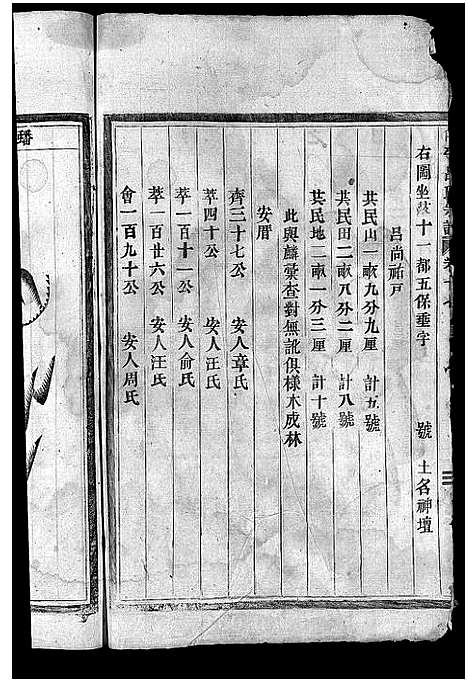 右圖坐落十一都五保垂字　號　土名神壇
呂尚祐戸
其民山一畝九分九厘　計五號
其民田二畝八分二厘　計八號
其民地二畝一分三厘　計十號
此與麟彙查對無訛俱樣木成林
安厝
齊三十七公　安人章氏
萃四十公　安人汪氏
萃一百十一公　安人俞氏
萃一百廿六公　安人汪氏
會一百九十公　安人周氏